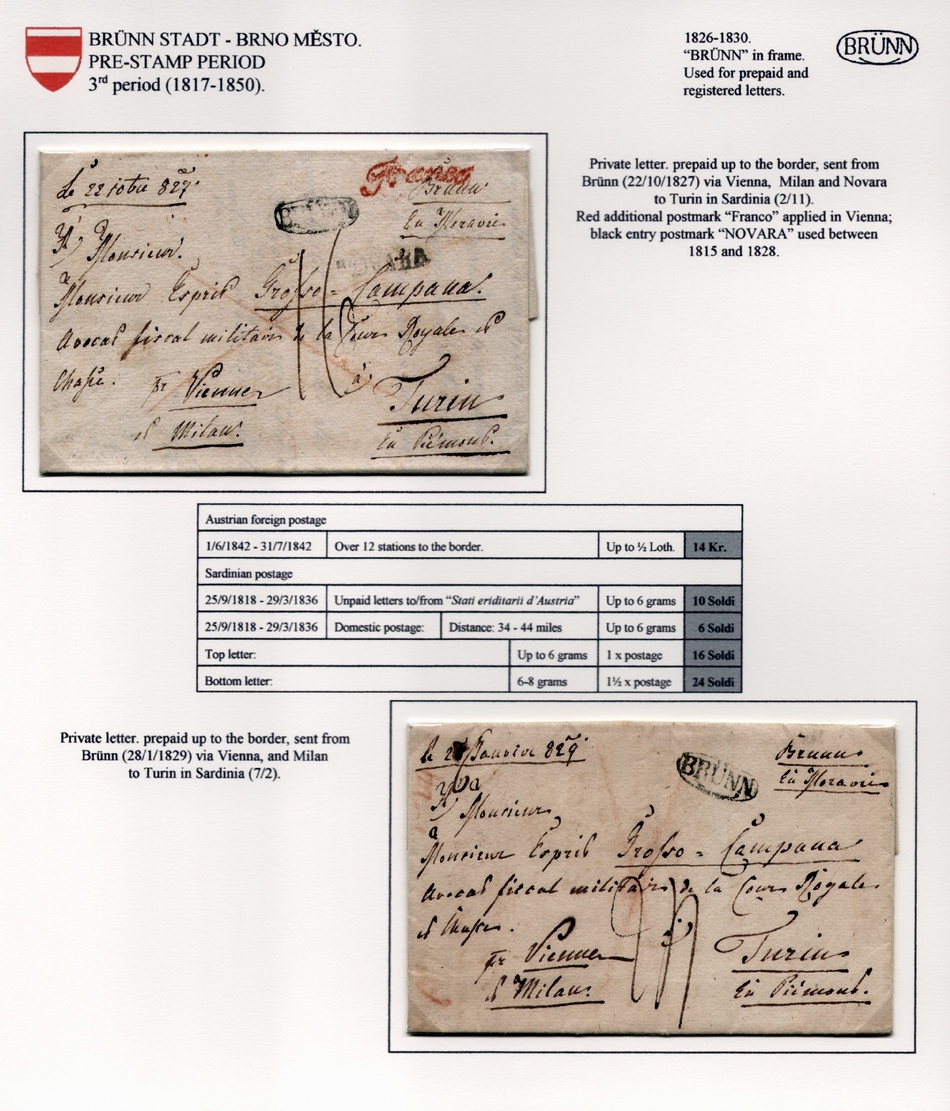 BRÜNN STADT - BRNO MĚSTO.
PRE-STAMP PERIOD
3rd period (1817-1850).
1826-1830.
“BRÜNN” in frame.
Used for prepaid and
registered letters.
BRÜNN
Private letter. prepaid up to the border, sent from
Brünn (22/10/1827) via Vienna, Milan and Novara
to Turin in Sardinia (2/11).
Red additional postmark “Franco” applied in Vienna;
black entry postmark “NOVARA” used between
1815 and 1828.
Le 22 8bre 827.
Franco
Brünn
En Moravie
BRÜNN
À Monsieur
NOVARA
Monsieur Esprit Grosso = Campana.
Avocat fiscal militaire de la Cour Royale et
16
pr Vienne
à
Turin
et Milan.
En Piémont.
Austrian foreign postage
1/6/1842 - 31/7/1842 Over 12 stations to the border. Up to ½ Loth. 14 Kr.
Sardinian postage
25/9/1818 - 29/3/1836 Unpaid letters to/from “Stati eriditarii d’Austria” Up to 6 grams 10 Soldi
25/9/1818 - 29/3/1836 Domestic postage: Distance: 34 - 44 miles Up to 6 grams 6 Soldi
Top letter: Up to 6 grams 1 x postage 16 Soldi
Bottom letter: 6-8 grams 1½ x postage 24 Soldi
Private letter. prepaid up to the border, sent from
Brünn (28/1/1829) via Vienna, and Milan
to Turin in Sardinia (7/2).
Janvier 829
BRÜNN
Brunn
En Moravie
À Monsieur
Monsieur Esprit Grosso = Campana
Avocat fiscal militaire de la Cour Royale
24
à
pr Vienne
Turin
et Milan.
En Piémont.